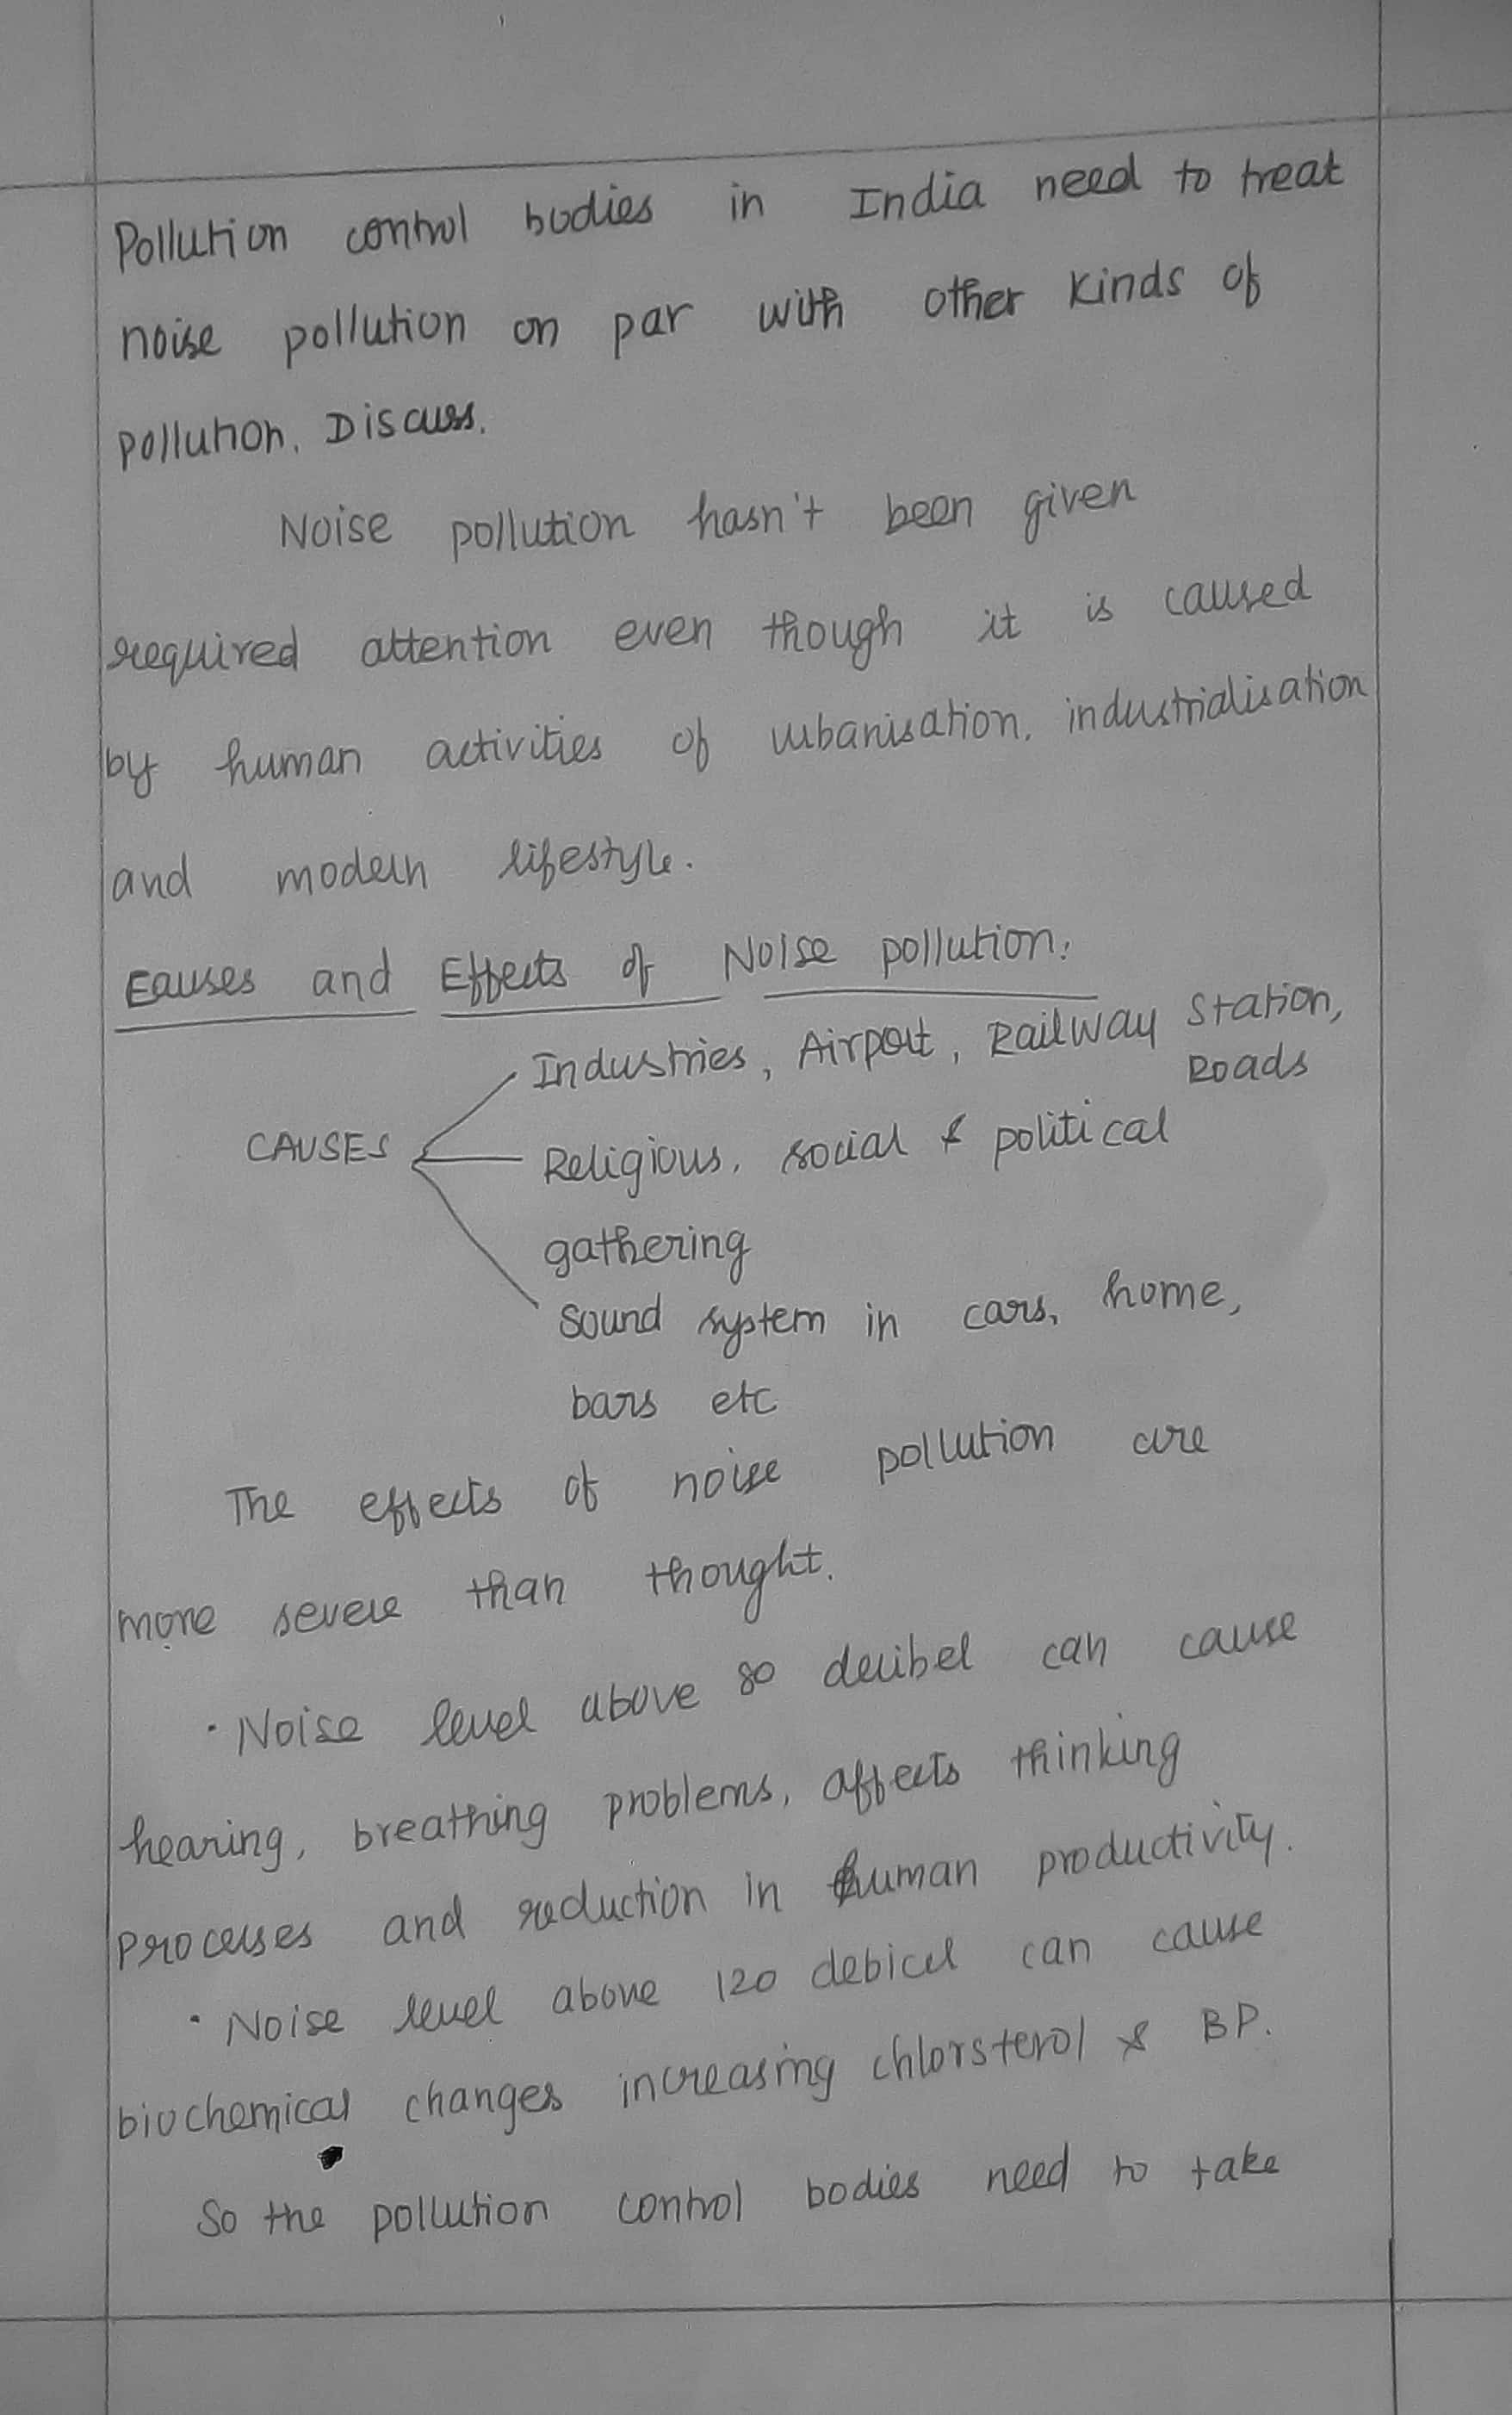 Pollution control bodies in India need to treat
noise pollution on par with other kinds of
pollution. Discuss.
Noise pollution hasn't been given
required attention even though it is caused
by human activities of urbanisation, industrialisation
and modern lifestyle.
Eauses and Effects of Noise pollution:
Industries, Airport, Railway Station,
Roads
CAUSES
Religious, social & political
gathering
Sound system in cars, home,
bars etc
The effects of noise pollution are
more severe than thought.
· Noise level above 80 decibel can cause
hearing, breathing problems, affects thinking
processes and reduction in human productivity.
· Noise level above 120 debicel can cause
biochemical changes increasing chlorsterol & BP.
So the pollution control bodies need to take